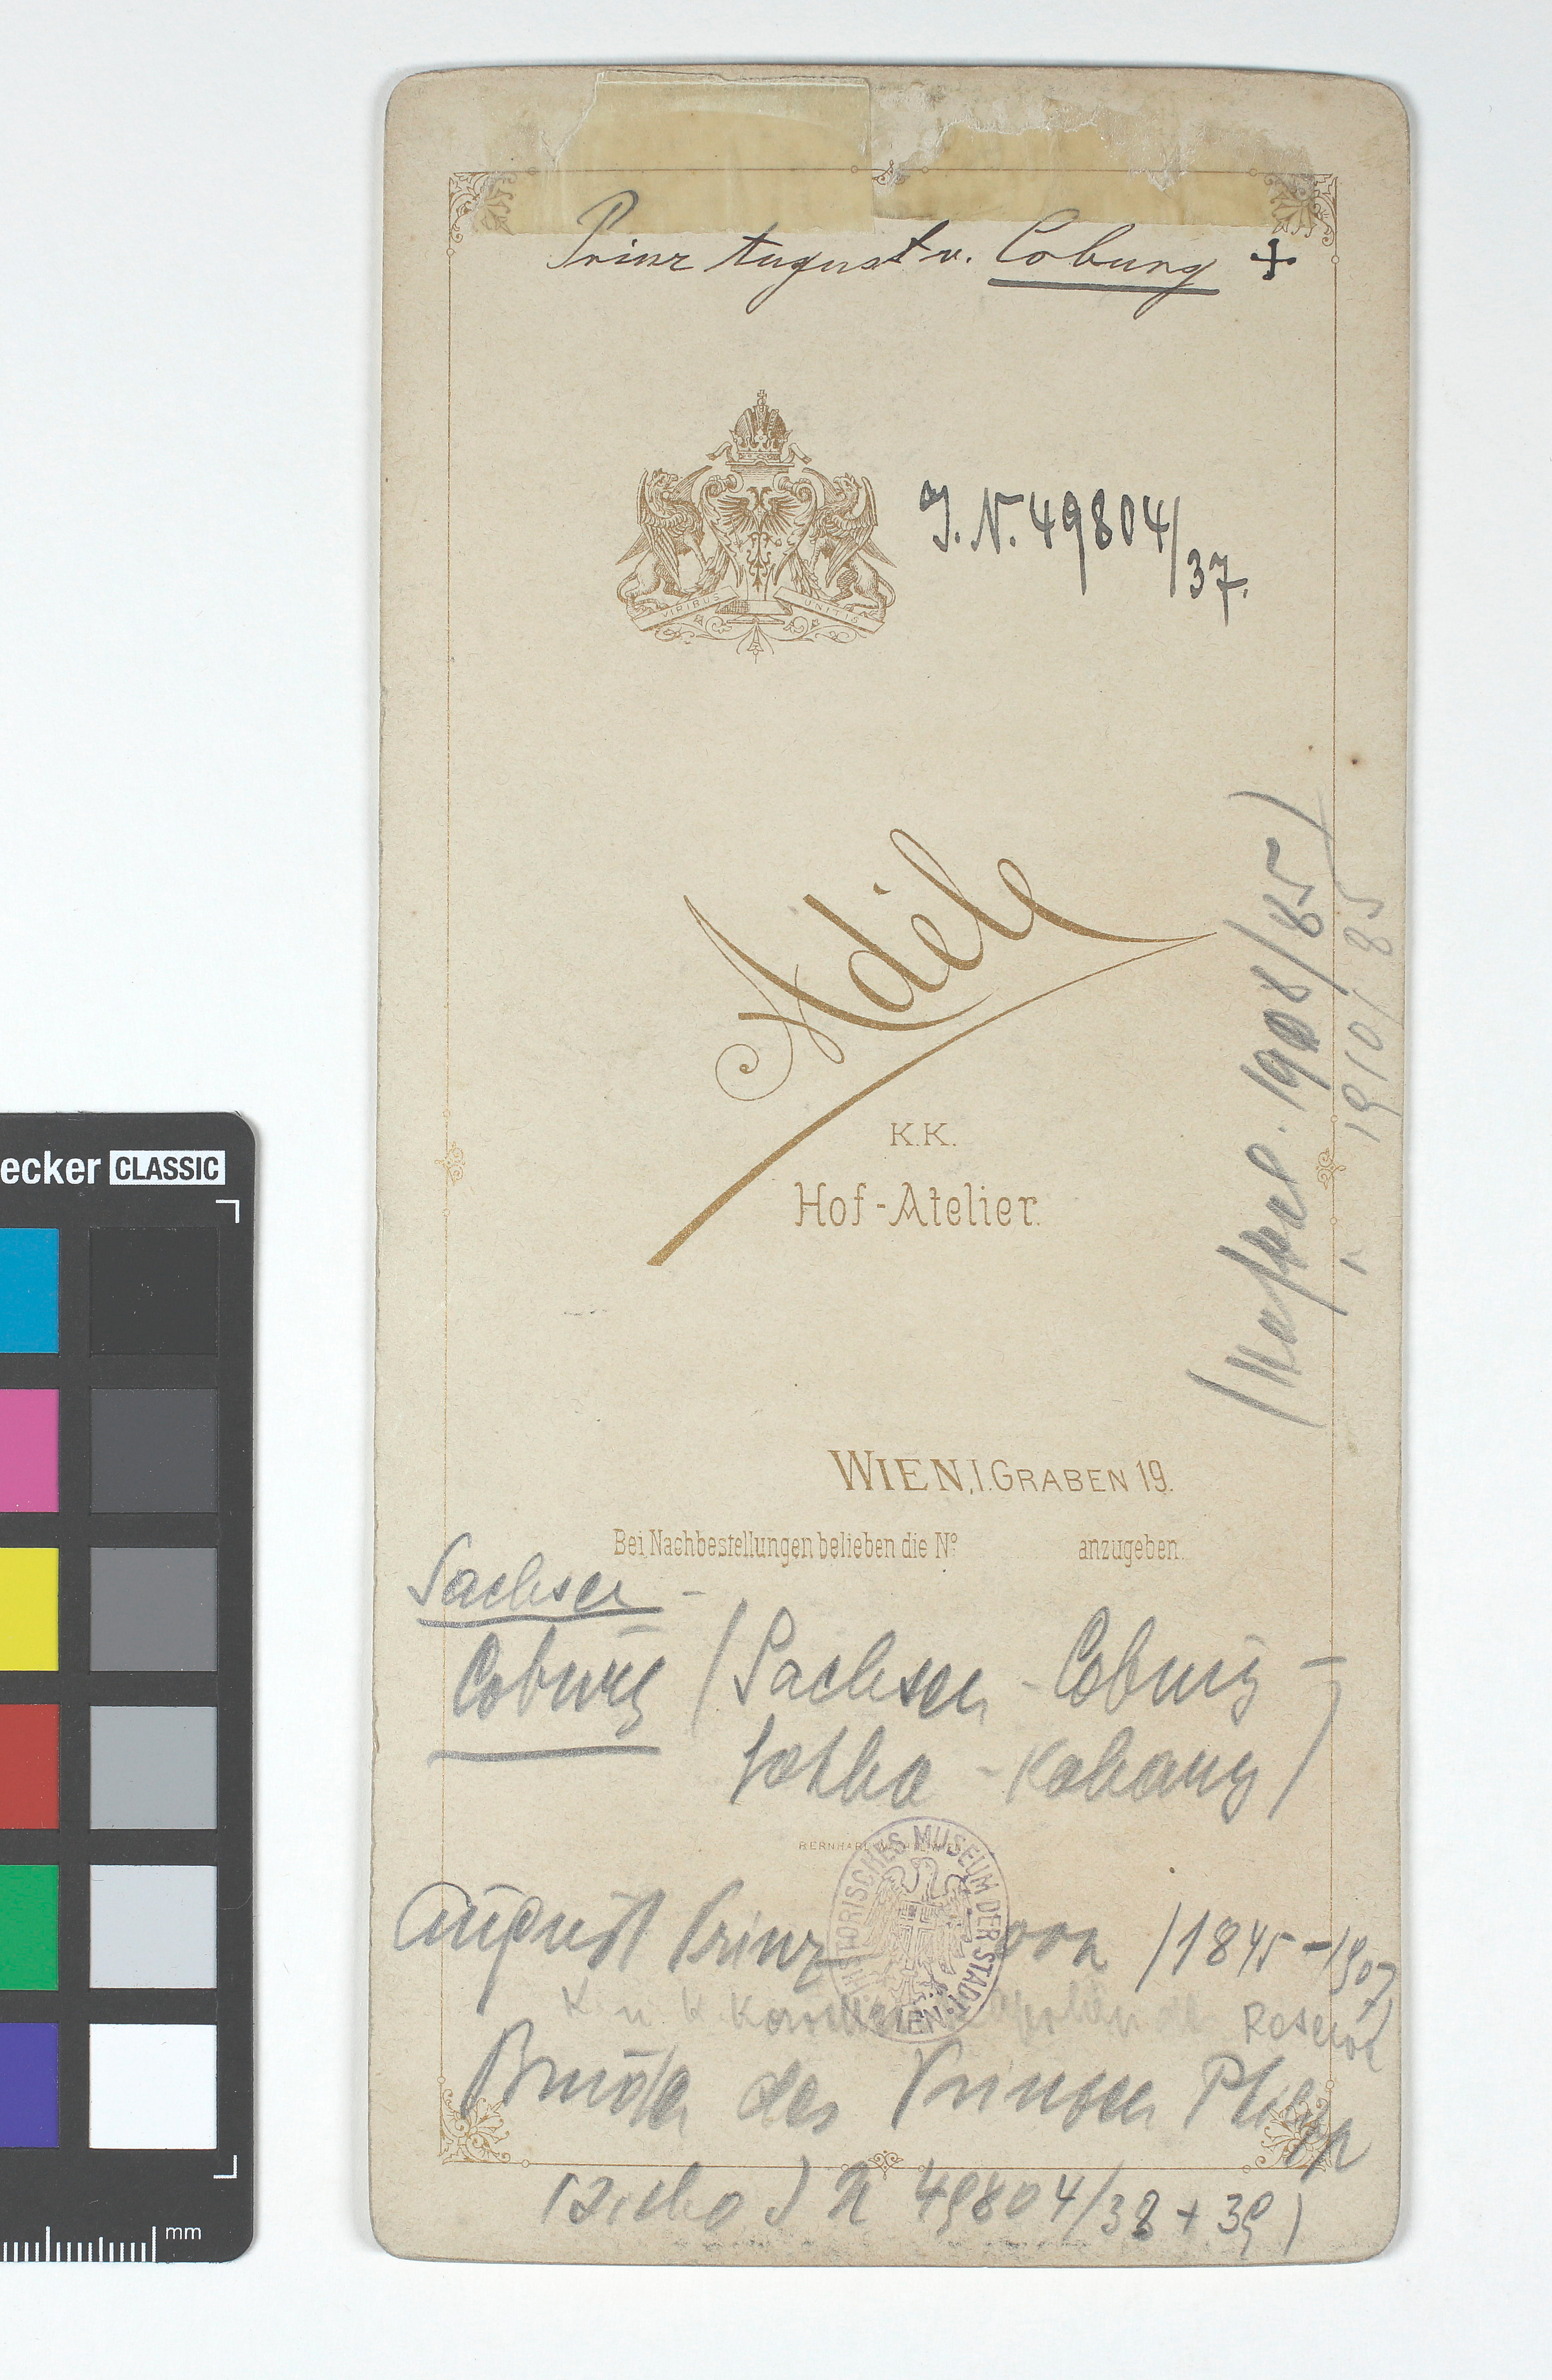 Prinz August v. Coburg +
J. N. 49804/37.
VIRIBUS UNITIS
Adèle
K.K.
Hof-Atelier.
1908/85)
1910/85
WIEN, I. GRABEN 19.
Bei Nachbestellungen belieben die Nº anzugeben.
Sachsen -
Coburg (Sachsen - Coburg -
Gotha - Kohary)
BERNHARD
HISTORISCHES MUSEUM DER STADT WIEN
August Prinz von (1845-1907)
K. u. K. Reserve
Bruder des Prinzen Philipp
(siehe J N 49804/38 + 39)
ecker CLASSIC
mm